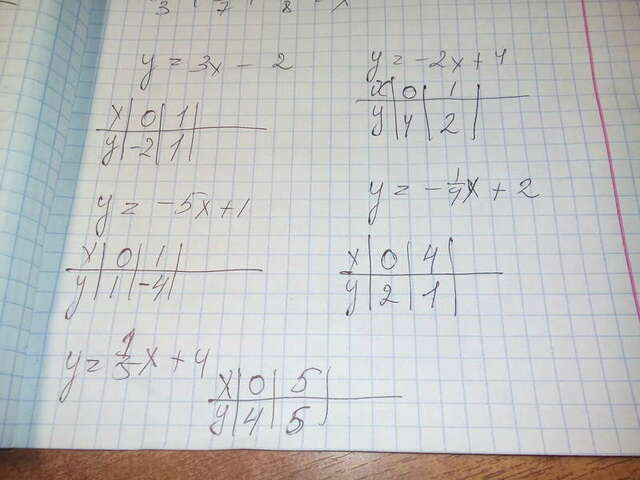 3 7 8
y = 3x - 2
x 0 1
y -2 1
y = -2x + 4
x 0 1
y 4 2
y = -5x + 1
x 0 1
y 1 -4
y = -1/4x + 2
x 0 4
y 2 1
y = 1/5x + 4
x 0 5
y 4 5